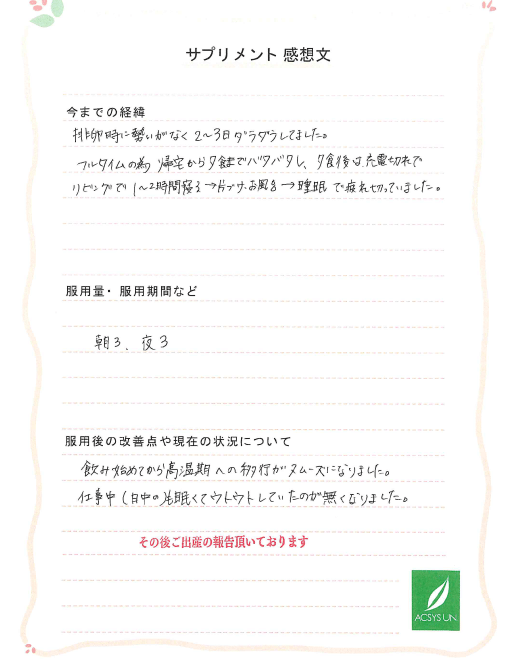 サプリメント 感想文
今までの経緯
排卵時に勢いがなく 2〜3日ダラダラしてました。
フルタイムの為 帰宅から夕食までバタバタし、夕食後は充電切れで
リビングで 1〜2時間寝る→片ヅケ、お風呂→睡眠 で疲れ切っていました。
服用量・服用期間など
朝3、夜3
服用後の改善点や現在の状況について
飲み始めてから高温期への移行がスムーズになりました。
仕事中（日中の）も眠くてウトウトしていたのが無くなりました。
その後ご出産の報告頂いております
ACSYS UN